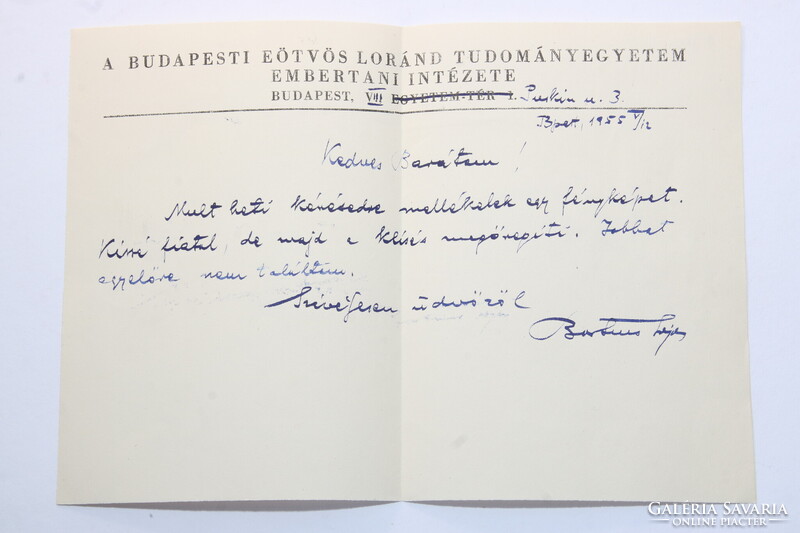 A BUDAPESTI EÖTVÖS LORÁND TUDOMÁNYEGYETEM
EMBERTANI INTÉZETE
BUDAPEST, VIII EGYETEM-TÉR 1. Puskin u. 3.
Bpest, 1955 V/12
Kedves Barátom!
Mult heti kérésedre mellékelek egy fényképet.
Kissé fiatal, de majd a klisés megöregíti. Jobbat
egyelőre nem találtam.
Szívélyesen üdvözöl
Bartucz Lajos
GALÉRIA SAVARIA
ONLINE PIACTÉR